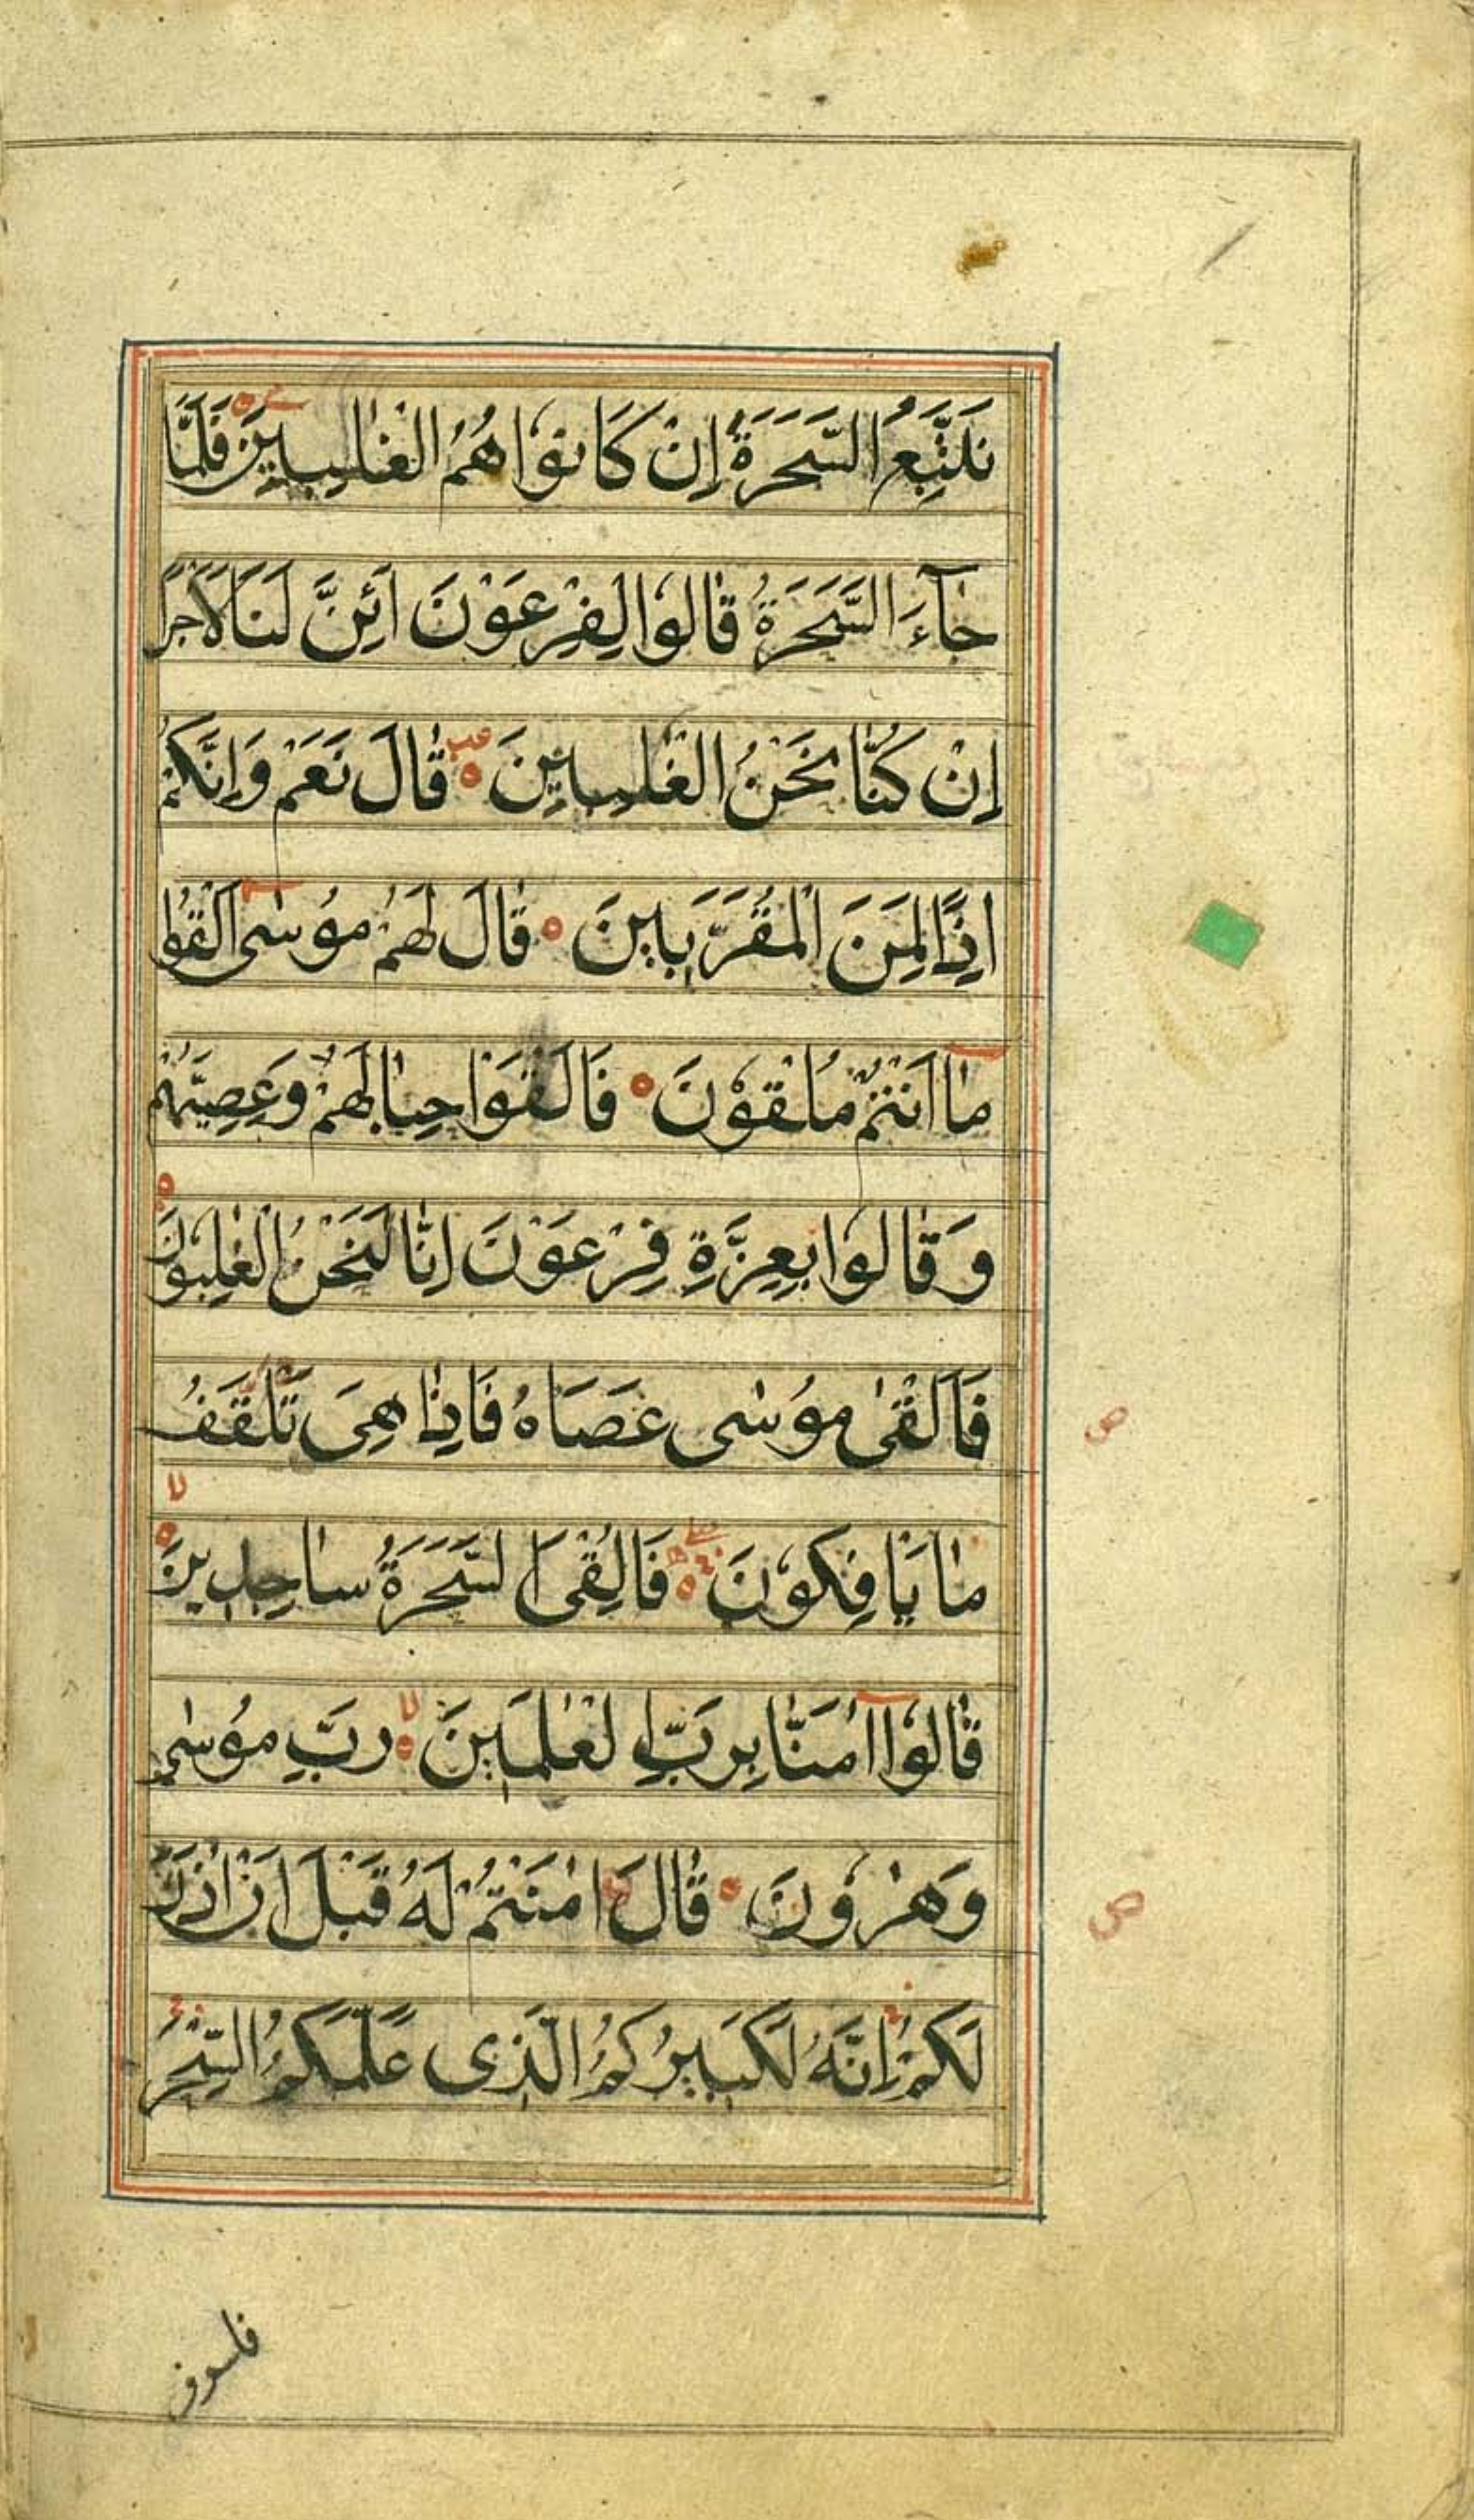 نَتَّبِعُ السَّحَرَةَ اِنْ كَانُوْا هُمُ الْغٰلِبِيْنَ فَلَمَّا
جَآءَ السَّحَرَةُ قَالُوْا لِفِرْعَوْنَ اَئِنَّ لَنَا لَاَجْرًا
اِنْ كُنَّا نَحْنُ الْغٰلِبِيْنَ ه قَالَ نَعَمْ وَاِنَّكُمْ
اِذًا لَمِنَ الْمُقَرَّبِيْنَ ه قَالَ لَهُمْ مُوْسٰى اَلْقُوْا
مَا اَنْتُمْ مُلْقُوْنَ ه فَاَلْقَوْا حِبَالَهُمْ وَعِصِيَّهُمْ
وَقَالُوْا بِعِزَّةِ فِرْعَوْنَ اِنَّا لَنَحْنُ الْغٰلِبُوْنَ ه
فَاَلْقٰى مُوْسٰى عَصَاهُ فَاِذَا هِيَ تَلْقَفُ
ص
مَا يَاْفِكُوْنَ ه فَاُلْقِيَ السَّحَرَةُ سَاجِدِيْنَ ه لا
قَالُوْا آمَنَّا بِرَبِّ الْعٰلَمِيْنَ ه لا رَبِّ مُوْسٰى
وَهٰرُوْنَ ه قَالَ اٰمَنْتُمْ لَهُ قَبْلَ اَنْ اٰذَنَ
ص
لَكُمْ اِنَّهُ لَكَبِيْرُكُمُ الَّذِى عَلَّمَكُمُ السِّحْرَ
فلسوف